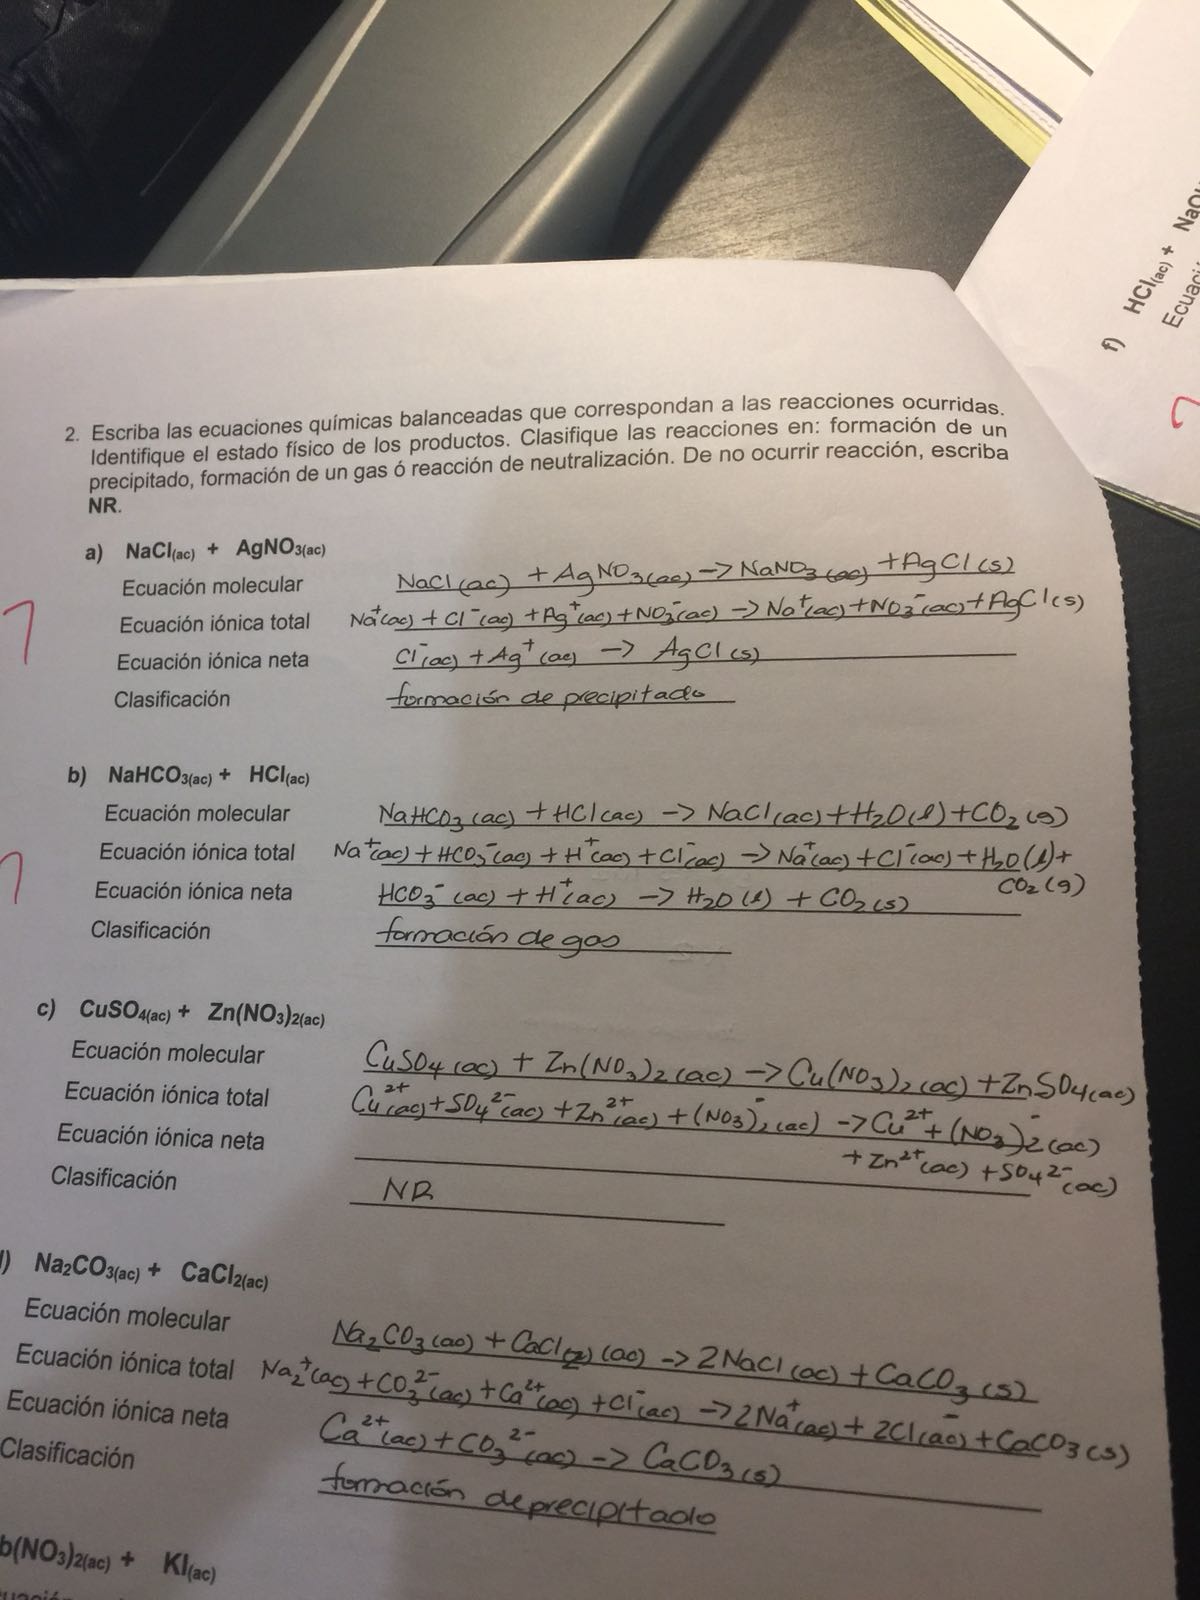 f) HCl(ac) + NaOH
Ecuaci
2. Escriba las ecuaciones químicas balanceadas que correspondan a las reacciones ocurridas.
Identifique el estado físico de los productos. Clasifique las reacciones en: formación de un
precipitado, formación de un gas ó reacción de neutralización. De no ocurrir reacción, escriba
NR.
a) NaCl(ac) + AgNO3(ac)
Ecuación molecular NaCl(ac) + AgNO3(ac) -> NaNO3(ac) + AgCl(s)
Ecuación iónica total Na+(ac) + Cl-(ac) + Ag+(ac) + NO3-(ac) -> Na+(ac) + NO3-(ac) + AgCl(s)
Ecuación iónica neta Cl-(ac) + Ag+(ac) -> AgCl(s)
Clasificación formación de precipitado
b) NaHCO3(ac) + HCl(ac)
Ecuación molecular NaHCO3(ac) + HCl(ac) -> NaCl(ac) + H2O(l) + CO2(g)
Ecuación iónica total Na+(ac) + HCO3-(ac) + H+(ac) + Cl-(ac) -> Na+(ac) + Cl-(ac) + H2O(l) +
CO2(g)
Ecuación iónica neta HCO3-(ac) + H+(ac) -> H2O(l) + CO2(s)
Clasificación formación de gas
c) CuSO4(ac) + Zn(NO3)2(ac)
Ecuación molecular CuSO4(ac) + Zn(NO3)2(ac) -> Cu(NO3)2(ac) + ZnSO4(ac)
Ecuación iónica total Cu2+(ac) + SO42-(ac) + Zn2+(ac) + (NO3)-2(ac) -> Cu2+ + (NO3)-2(ac)
+ Zn2+(ac) + SO42-(ac)
Ecuación iónica neta
Clasificación NR
) Na2CO3(ac) + CaCl2(ac)
Ecuación molecular Na2CO3(ac) + CaCl(2)(ac) -> 2NaCl(ac) + CaCO3(s)
Ecuación iónica total Na2+(ac) + CO32-(ac) + Ca2+(ac) + Cl-(ac) -> 2Na+(ac) + 2Cl-(ac) + CaCO3(s)
Ecuación iónica neta Ca2+(ac) + CO32-(ac) -> CaCO3(s)
Clasificación formación de precipitado
b(NO3)2(ac) + KI(ac)